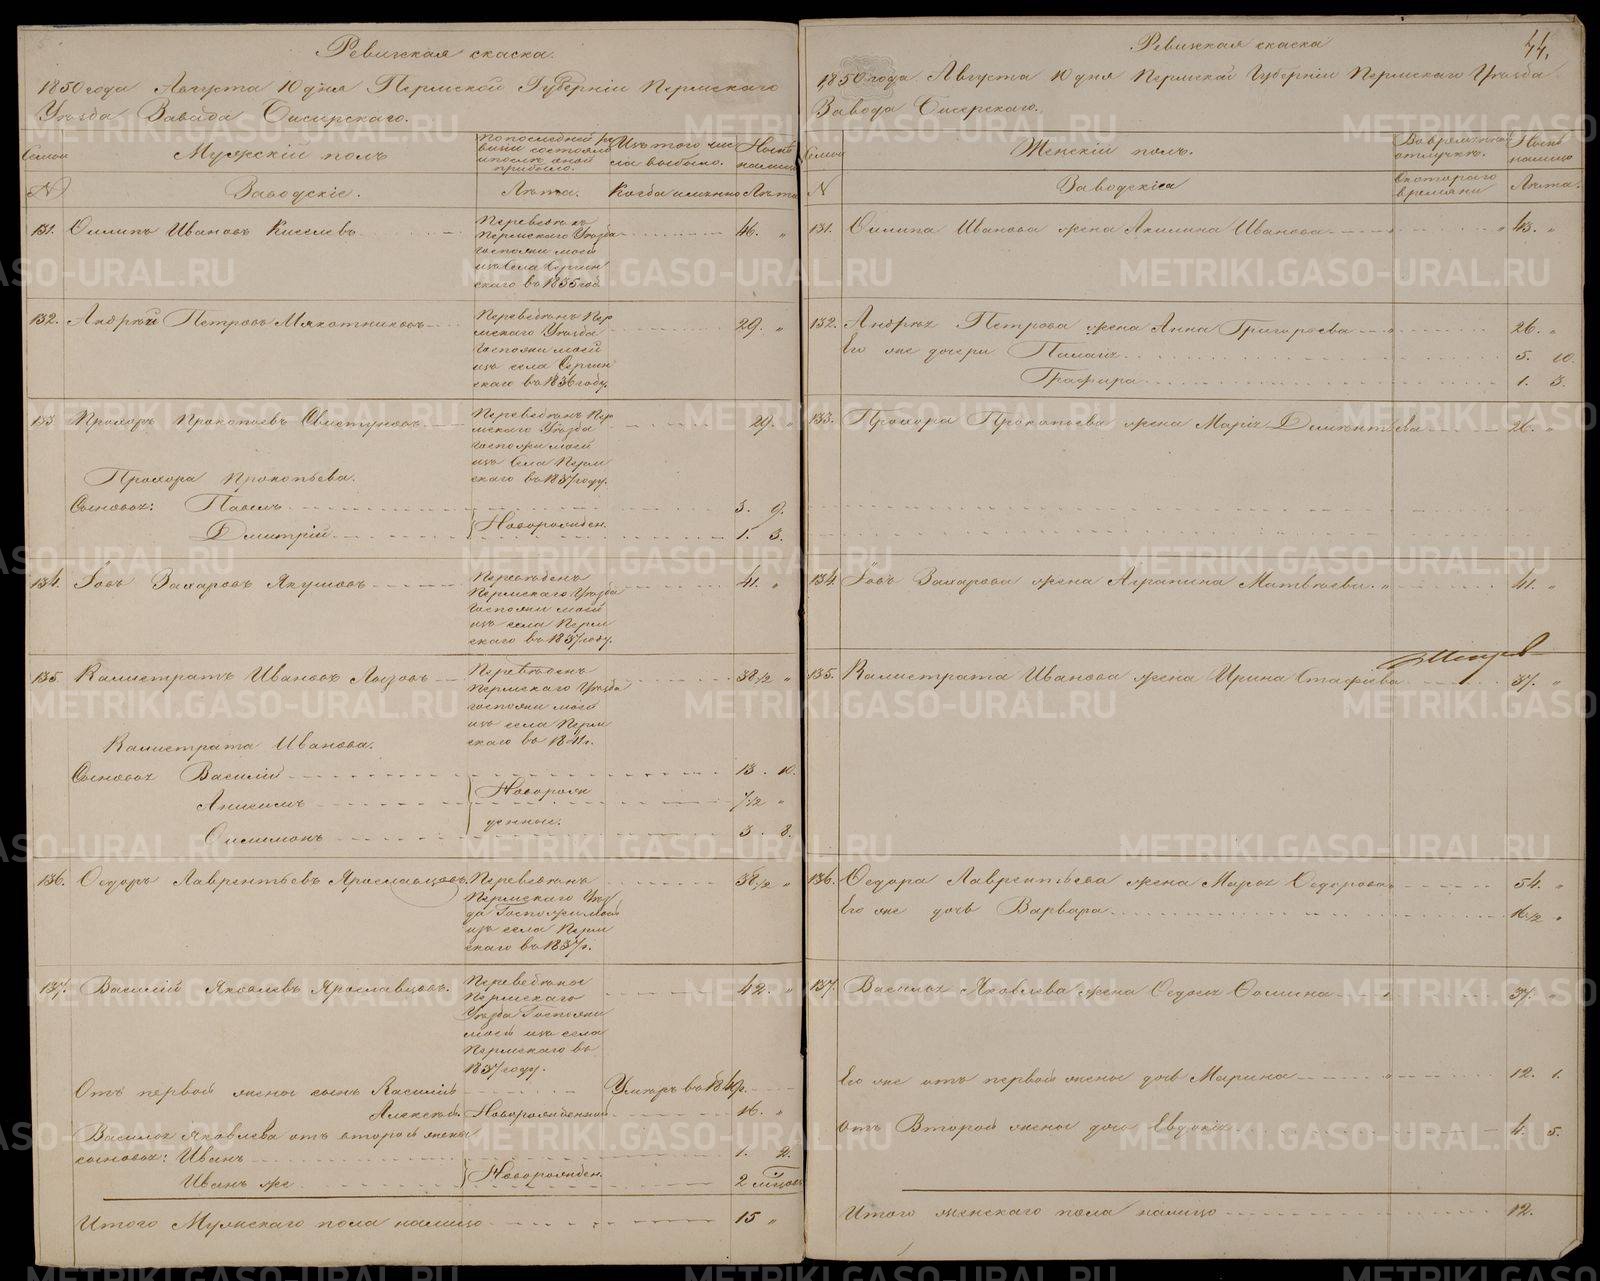 Ревизская сказка.
1850 года Августа 10 дня Пермской Губерніи Пермскаго
Уѣзда Завода Сисерскаго.
Семьи
Мужскій полъ
По последней ре
визіи состояло
и послѣ оной
прибыло.
Изъ того чи
сла выбыло.
Нынѣ
налицо
N
Заводскіе.
Лѣта.
Когда именно
Лѣта
131. Филипъ Ивановъ Киселевъ 46. "
Переведенъ
Пермскаго Уѣзда
Госпожи моей
изъ села Сергин
скаго въ 1835 год
132. Андрей Петровъ Мякотниковъ 29. "
Переведенъ Пер
мскаго Уѣзда
Госпожи моей
изъ села Сергин
скаго въ 1836 году.
133 Прохоръ Прокопьевъ Свистуновъ 29. "
Переведенъ Пер
мскаго Уѣзда
госпожи моей
изъ села Перм
скаго въ 1837 году.
Прохора Прокопьева.
Сыновья: Павелъ 3. 9.
Дмитрій Новорожден. 1. 3.
134. Іовъ Захаровъ Якушовъ 41. "
Переведенъ
Пермскаго Уѣзда
Госпожи моей
изъ села Перм
скаго въ 1837 году.
135. Калистратъ Ивановъ Лызовъ 38 1/2 "
Переведенъ
Пермскаго Уѣзда
госпожи моей
изъ села Перм
скаго въ 1841 г.
Калистрата Иванова.
Сыновья Василій 13. 10.
Новорож
7 1/2 "
денные.
Филимонъ 3. 8.
136. Федоръ Лаврентьевъ Ярославцовъ 38 1/2 "
Переведенъ
Пермскаго Уѣз
да Госпожи моей
изъ села Перм
скаго въ 1837 г.
137. Василій Яковлевъ Ярославцовъ. 42. "
Переведены
Пермскаго
Уѣзда Госпожи
моей изъ села
Пермскаго въ
1837 году.
Отъ первой жены сынъ Василій Умеръ въ 1849.
Алексѣй. Новорожденной 16. "
Василья Яковлева отъ второй жены
сыновья: Иванъ 1. 2.
Иванъ же Новорожден. 2 мѣсяцовъ
Итого Мужскаго пола налицо 15 "
Ревизская сказка
44.
1850 года Августа 10 дня Пермской Губерніи Пермскаго Уѣзда
Завода Сисерскаго.
Семьи
Женскій полъ.
Во временной
отлучкѣ.
Нынѣ
налицо
N
Заводскіе
съ котораго
времяни
Лѣта.
131. Филипа Иванова жена Акилина Иванова " 43. "
132. Андрея Петрова жена Анна Григорьева " 26. "
Его же дочери Палагія 5. 10.
Глафира 1. 3.
133. Прохора Прокопьева жена Марія Дементьева 26. "
134. Іова Захарова жена Аграпина Матвѣева. " 41. "
135. Калистрата Иванова жена Ирина Стафѣева 37. "
136. Федора Лаврентьева жена Марья Федорова 54. "
Его же дочь Варвара 16 1/2 "
137. Василья Яковлева жена Федосья Фомина " 37. "
Его же отъ первой жены дочь Марина " 12. 1.
отъ Второй жены дочь Евдокія 4. 5.
Итого женскаго пола налицо 12.
METRIKI.GASO-URAL.RU